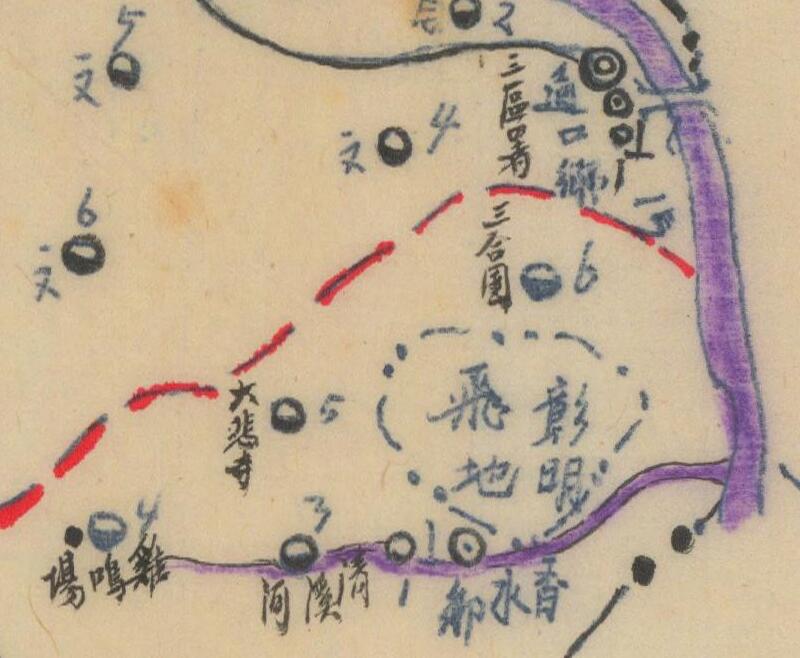 5
文
2
4
文
三區署
通口鄉
6
文
三合圍
6
彰明
飛地
大悲寺
5
4
雞鳴場
3
清溪河
1
1
香水鄉